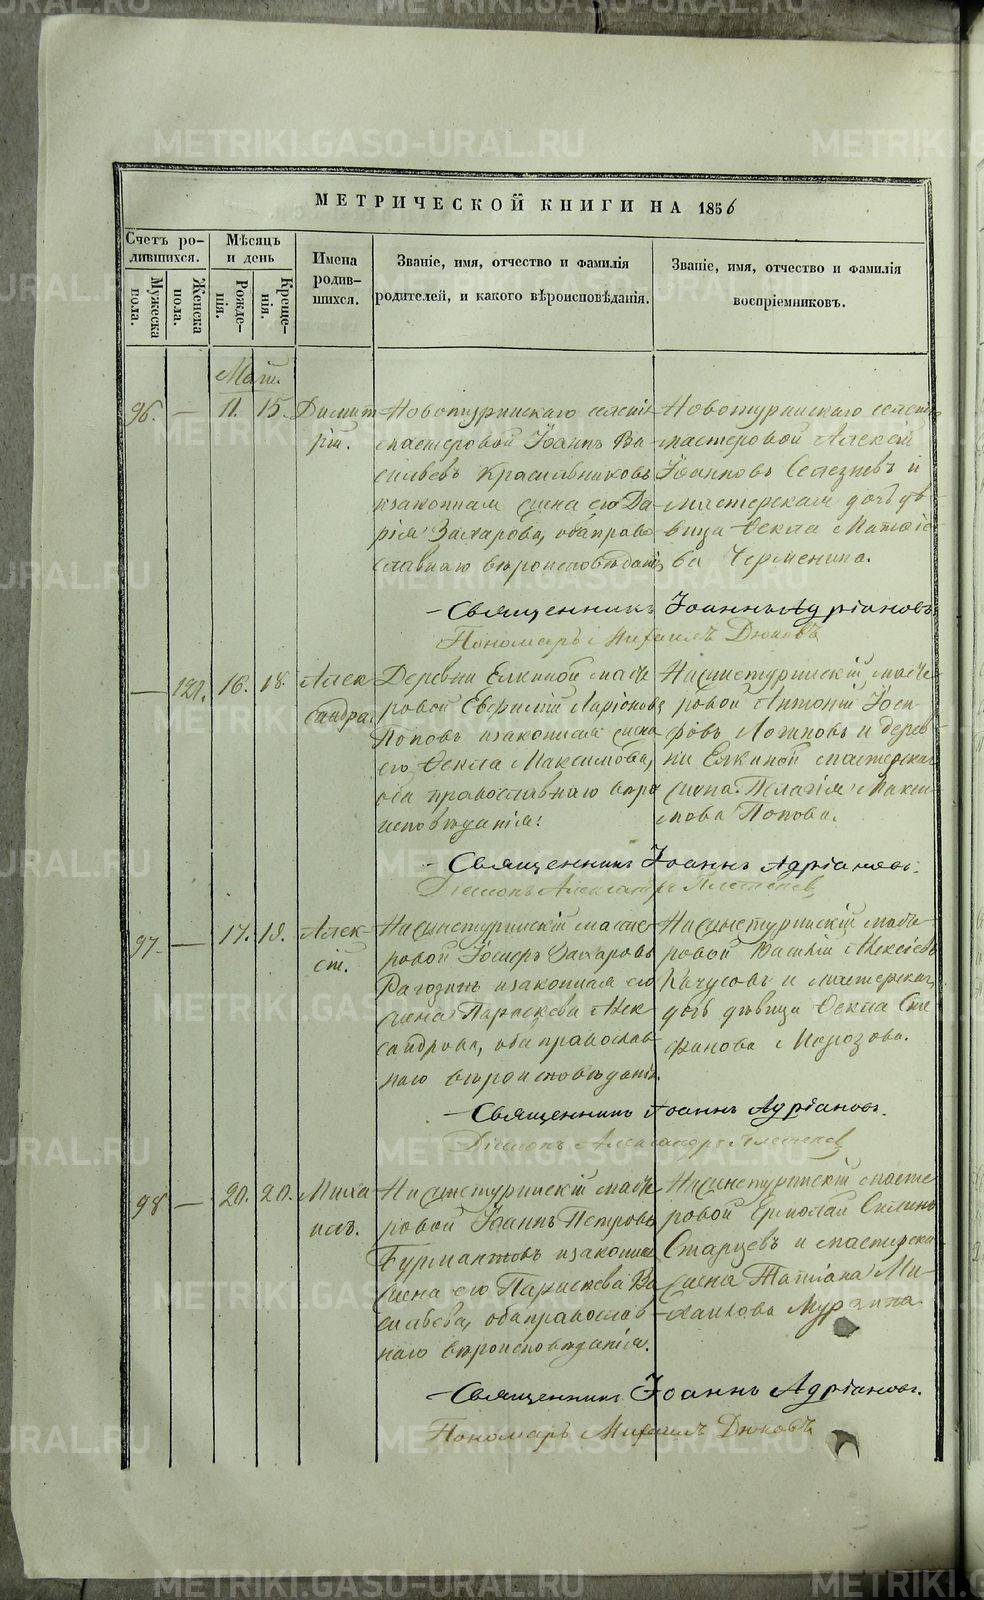 МЕТРИЧЕСКОЙ КНИГИ НА 1856
Счетъ ро-
дившихся.
Мужеска
пола.
Женска
пола.
Мѣсяцъ
и день
Рожде-
нія.
Креще-
нія.
Имена
родив-
шихся.
Званіе, имя, отчество и фамилія
родителей, и какого вѣроисповѣданія.
Званіе, имя, отчество и фамилія
воспріемниковъ.
Маій.
96. — 11. 15. Димит
рій.
Новотуринскаго селенія
мастеровой Іоаннъ Ва
сильевъ Красильниковъ
и законная жена его Да
рія Захарова, оба право
славнаго вѣроисповѣданія,
Новотуринскаго селенія
мастеровой Алексій
Іоанновъ Селезневъ и
мастерская дочь дѣ-
вица Ѳекла Матѳіе-
ва Черменина.
— Священникъ Іоаннъ Адріановъ.
Пономарь Михаилъ Дюковъ
— 121. 16. 18. Алек
сандра.
Деревни Елкиной масте
ровой Евфимій Ларіоновъ
Поповъ и законная жена
его Ѳекла Максимова,
оба православнаго вѣро
исповѣданія.
Нижнетуринскій масте-
ровой Антоній Іоси-
фовъ Логиновъ и дерев
ни Елкиной мастерская
жена Пелагія Макси-
мова Попова.
— Священникъ Іоаннъ Адріановъ.
Діаконъ Александръ Плетеневъ
97. — 17. 18. Алек-
сій.
Нижнетуринскій масте
ровой Іосифъ Захаровъ
Рагозинъ и законная его
жена Параскева Алек
сандрова, оба православ
наго вѣроисповѣданія.
Нижнетуринскій масте-
ровой Василій Алексіевъ
и мастерская
дочь дѣвица Ѳекла Сте
фанова Морозова.
— Священникъ Іоаннъ Адріановъ.
Діаконъ Александръ Плетеневъ
98 — 20. 20. Миха
илъ.
Нижнетуринскій масте
ровой Іоаннъ Петровъ
Бурмантовъ и законная
жена его Параскева Ва
сильева, оба православ
наго вѣроисповѣданія.
Нижнетуринскій масте
ровой Ермолай Силинъ
Старцевъ и мастерская
жена Татіана Ми-
хаилова Мурзина
— Священникъ Іоаннъ Адріановъ.
Пономарь Михаилъ Дюковъ
METRIKI.GASO-URAL.RU